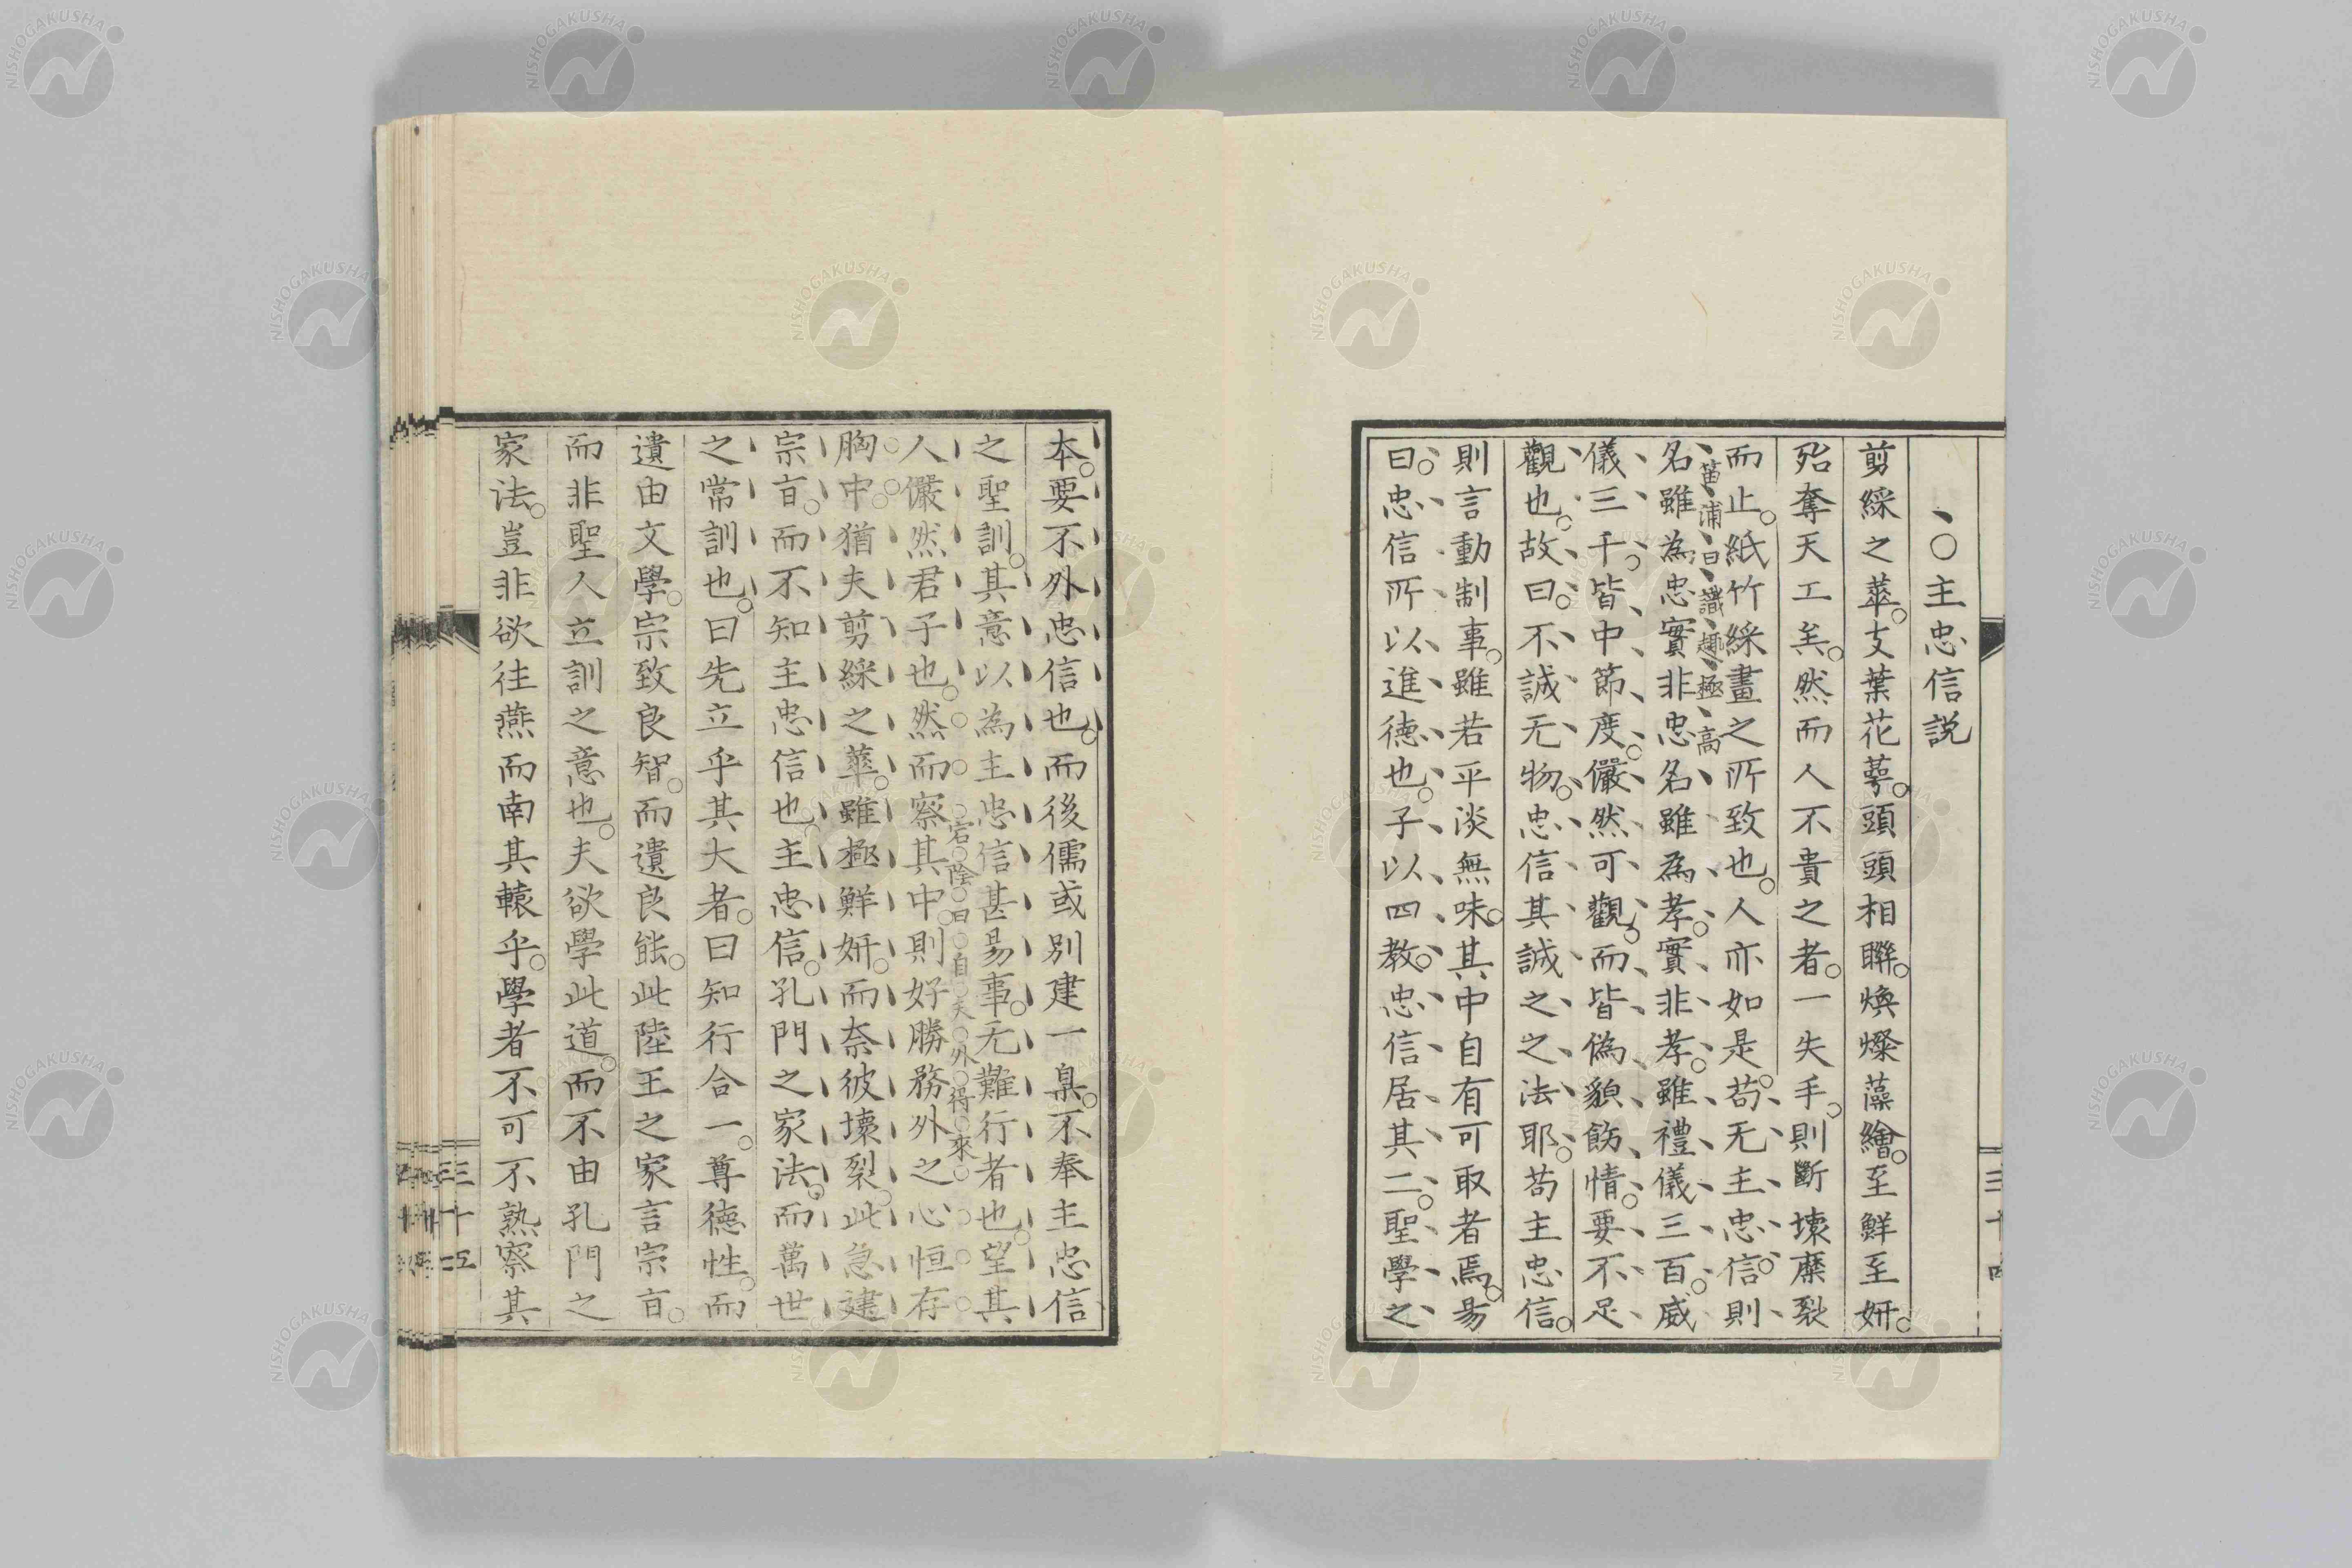 主忠信説
剪綵之蕐。支葉花萼。頭頭相聯。煥燦藻繪。至鮮至妍。
殆奪天工矣。然而人不貴之者。一失手。則斷壞糜裂
而止。紙竹綵畫之所致也。人亦如是。苟无主忠信。則
笛浦曰識趣極高
名雖為忠實非忠名雖為孝。實非孝。雖禮儀三百。威
儀三千。皆中節度。儼然可觀。而皆偽貌飭情。要不足
觀也。故曰。不誠无物。忠信其誠之之法耶。苟主忠信。
則言動制事。雖若平淡無味。其中自有可取者焉。易
曰。忠信所以進德也。子以四教。忠信居其二。聖學之
三十四
本。要不外忠信也。而後儒或別建一臬。不奉主忠信
之聖訓。其意以為主忠信甚易事。无難行者也。望其
人儼然君子也。然而察其中。則好勝務外之心恒存
宕陰曰自天外得來
胸中。猶夫剪綵之蕐。雖極鮮妍。而奈彼壞裂。此急建
宗㫖。而不知主忠信也。主忠信。孔門之家法。而萬世
之常訓也。曰先立乎其大者。曰知行合一。尊德性。而
遺由文學。宗致良智。而遺良能。此陸王之家言宗㫖。
而非聖人立訓之意也。夫欲學此道。而不由孔門之
家法。豈非欲往燕而南其轅乎。學者不可不熟察其
三十五
NISHOGAKUSHA